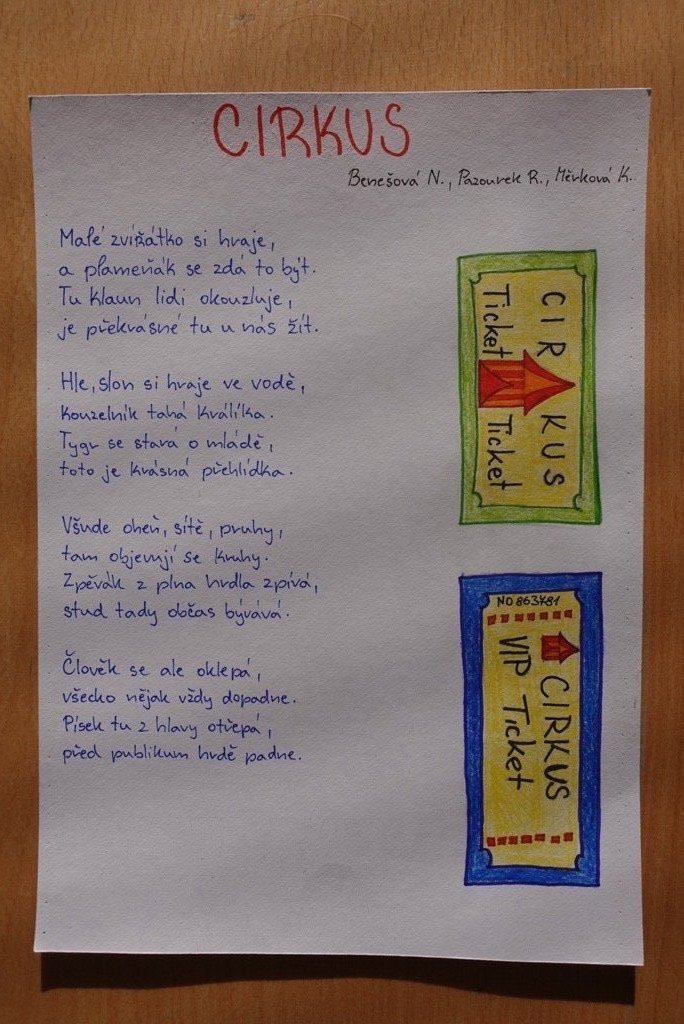 CIRKUS
Benešová N., Pazourek R., Měrková K.
Malé zvířátko si hraje,
a plameňák se zdá to být.
Tu klaun lidi okouzluje,
je překrásné tu u nás žít.
Hle, slon si hraje ve vodě,
kouzelník tahá králíka.
Tygr se stará o mládě,
toto je krásná přehlídka.
Všude oheň, sítě, pruhy,
tam objevují se kruhy.
Zpěvák z plna hrdla zpívá,
stud tady občas bývává.
Člověk se ale oklepá,
všecko nějak vždy dopadne.
Písek tu z hlavy otřepá,
před publikum hrdě padne.
CIRKUS
Ticket Ticket
NO 863481
CIRKUS
VIP Ticket